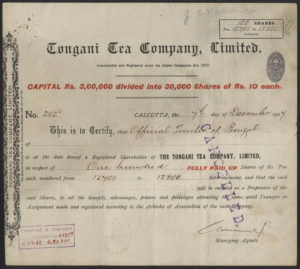 100 SHARES
No. 12701 to 12800
Tongani Tea Company, Limited.
Incorporated and Registered under the Indian Companies Act, 1913.
CAPITAL Rs. 3,00,000 divided into 30,000 Shares of Rs. 10 each.
No. 285
CALCUTTA, the 7th of December 19
This is to Certify, that Official Trustee of Bengal
is at the date hereof a Registered Shareholder of THE TONGANI TEA COMPANY, LIMITED,
in respect of One hundred FULLY PAID UP Shares of Rs. Ten
each, numbered from 12701 to 12800 both inclusive, and that the said
will be entitled as a Proprietor of the
said Shares, to all the benefits, advantages, powers and privileges attending the same, until Transfer or
Assignment made and registered according to the Articles of Association of the said Company.
CANCELLED
Managing Agents.